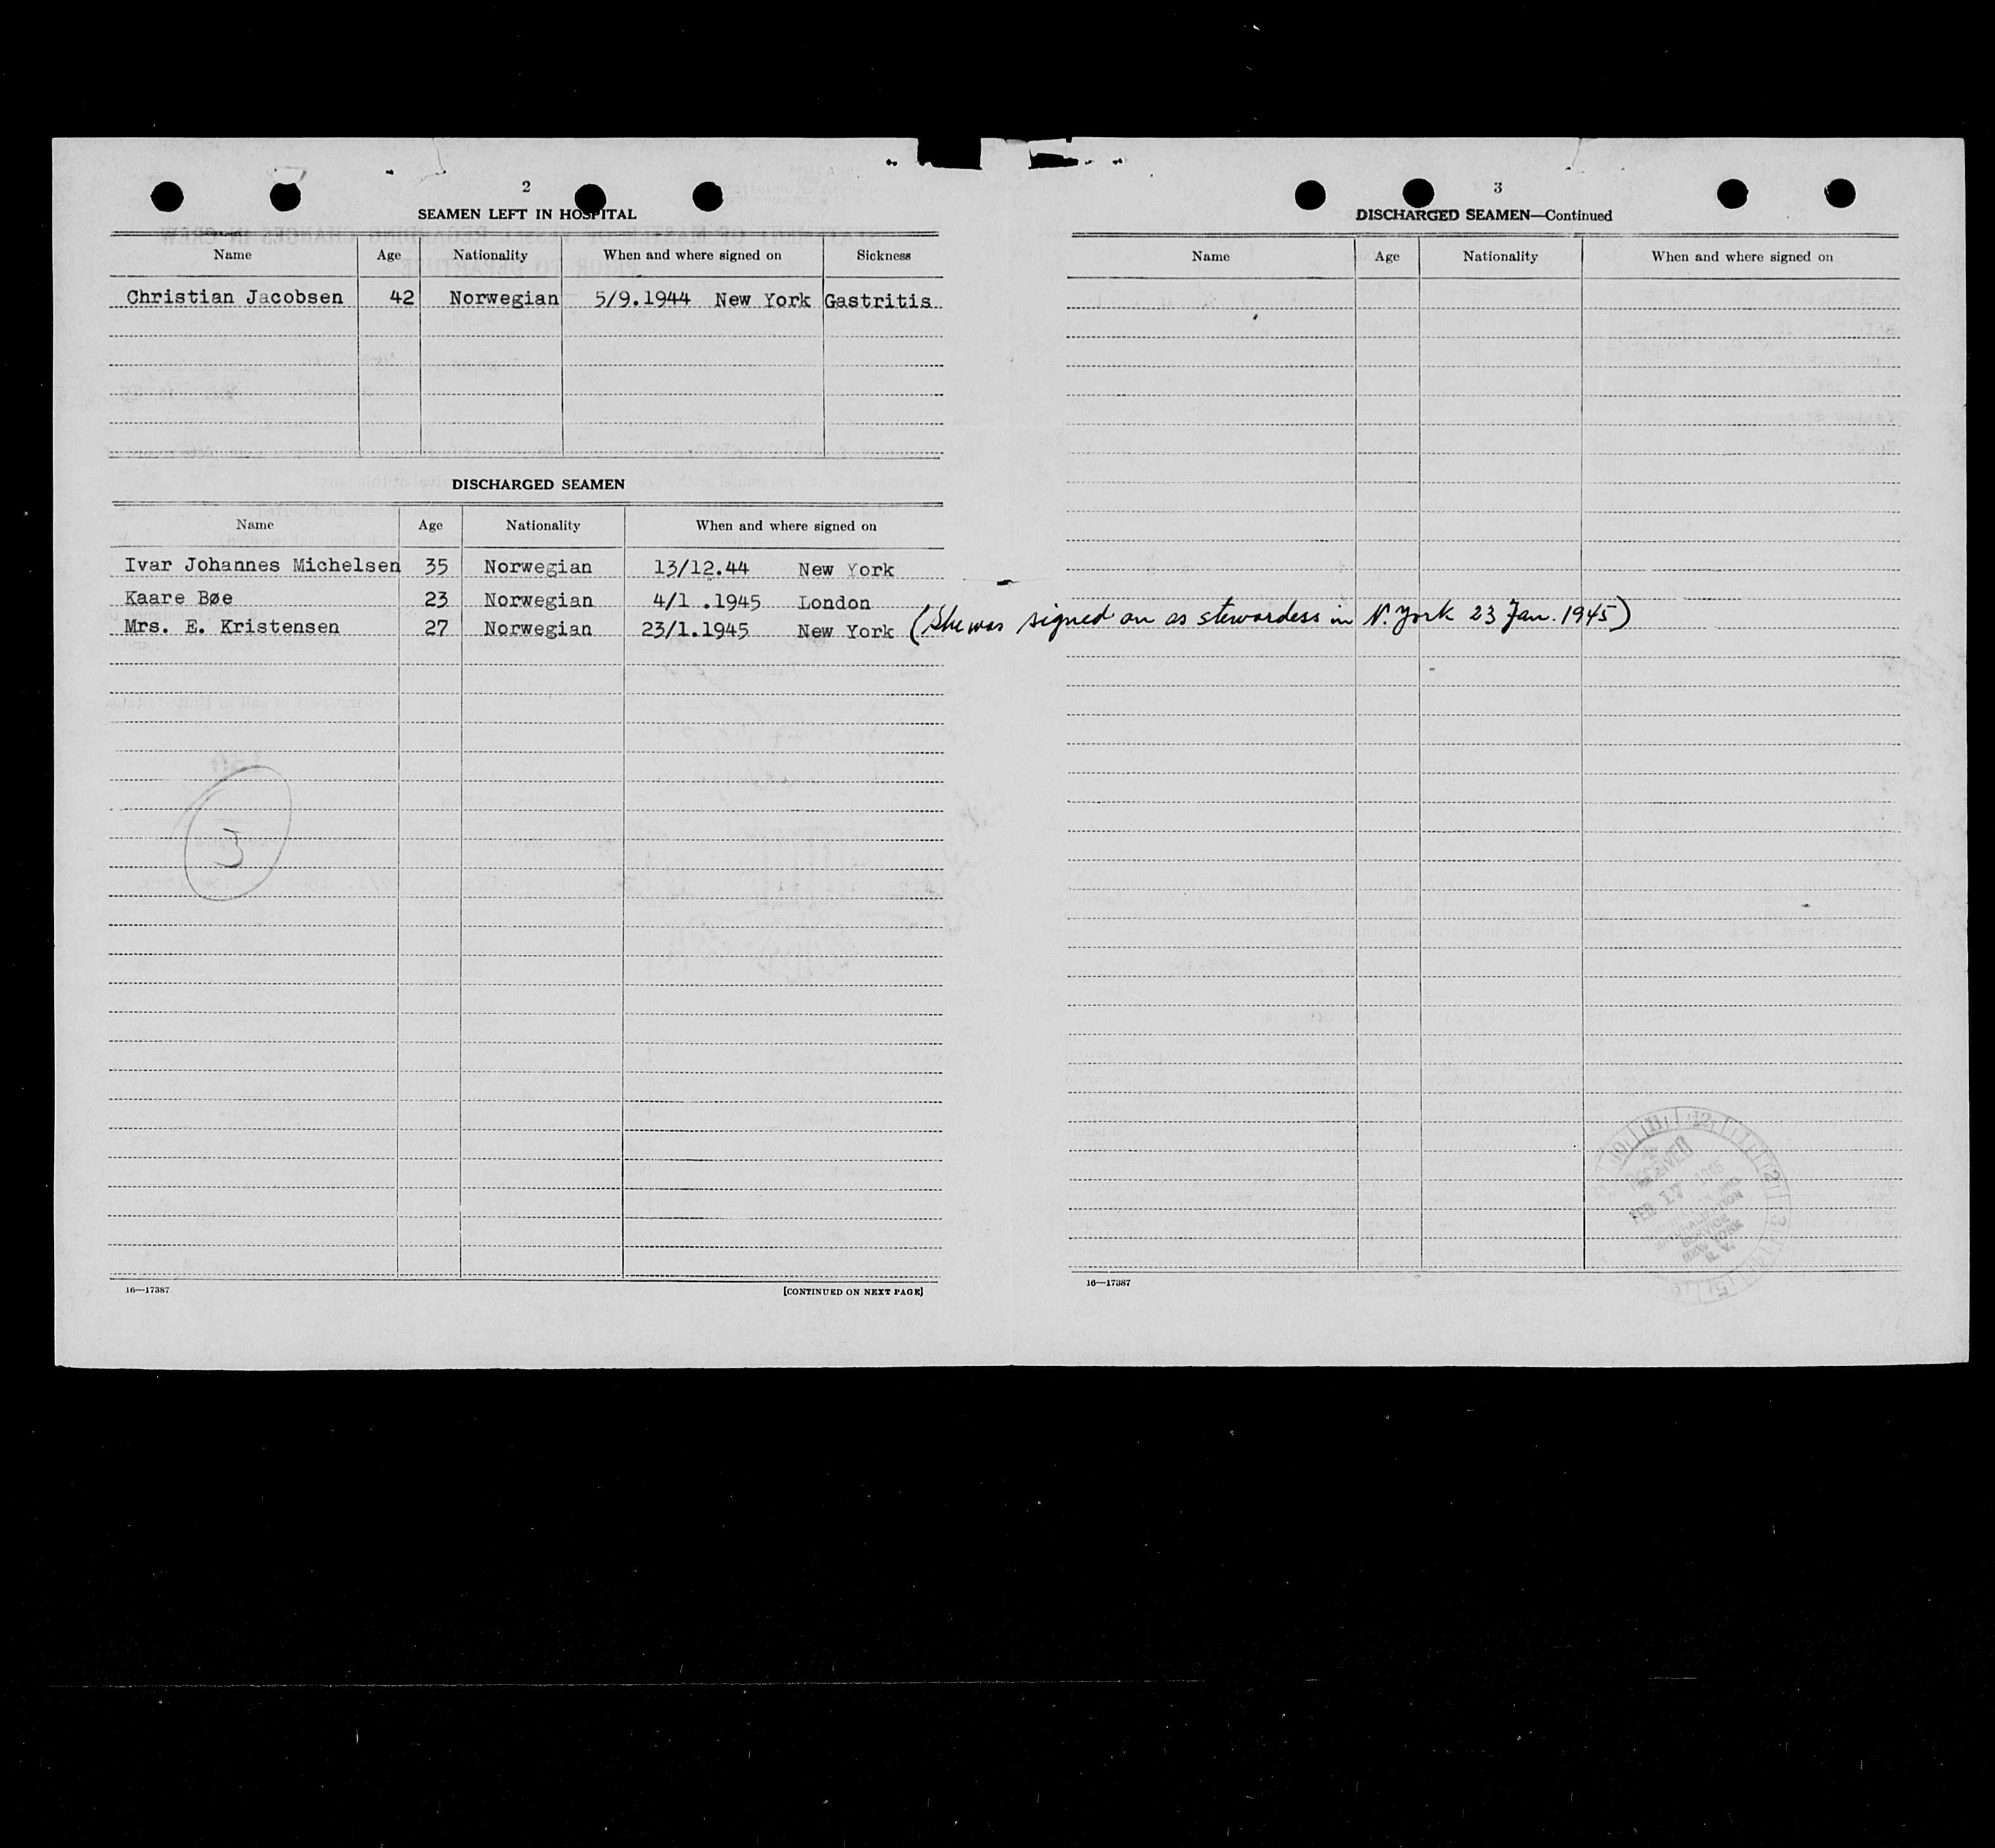 2
SEAMEN LEFT IN HOSPITAL
Name Age Nationality When and where signed on Sickness
Christian Jacobsen 42 Norwegian 5/9.1944 New York Gastritis
DISCHARGED SEAMEN
Name Age Nationality When and where signed on
Ivar Johannes Michelsen 35 Norwegian 13/12.44 New York
Kaare Bøe 23 Norwegian 4/1 .1945 London
Mrs. E. Kristensen 27 Norwegian 23/1.1945 New York (She was signed on as stewardess in N. York 23 Jan. 1945)
3
16—17387
[CONTINUED ON NEXT PAGE]
3
DISCHARGED SEAMEN—Continued
Name Age Nationality When and where signed on
RECEIVED
FEB 17 1945
NATURALIZATION
SERVICE
NEW YORK
N. Y.
16—17387